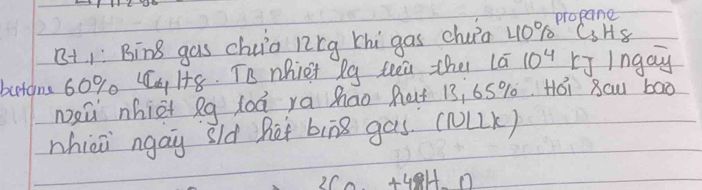 propane
Bt1: Bình gas chứa 12kg khi gas chứa 40% C3H8
butane 60% C4H8. TB nhiệt lg tiêu thụ là 10⁴ kJ 1ngày
nếu nhiệt lg toả ra hao hụt 13,65%. Hỏi sau bao
nhiêu ngày s/d hết bình gas. (NLLK)
+4H O